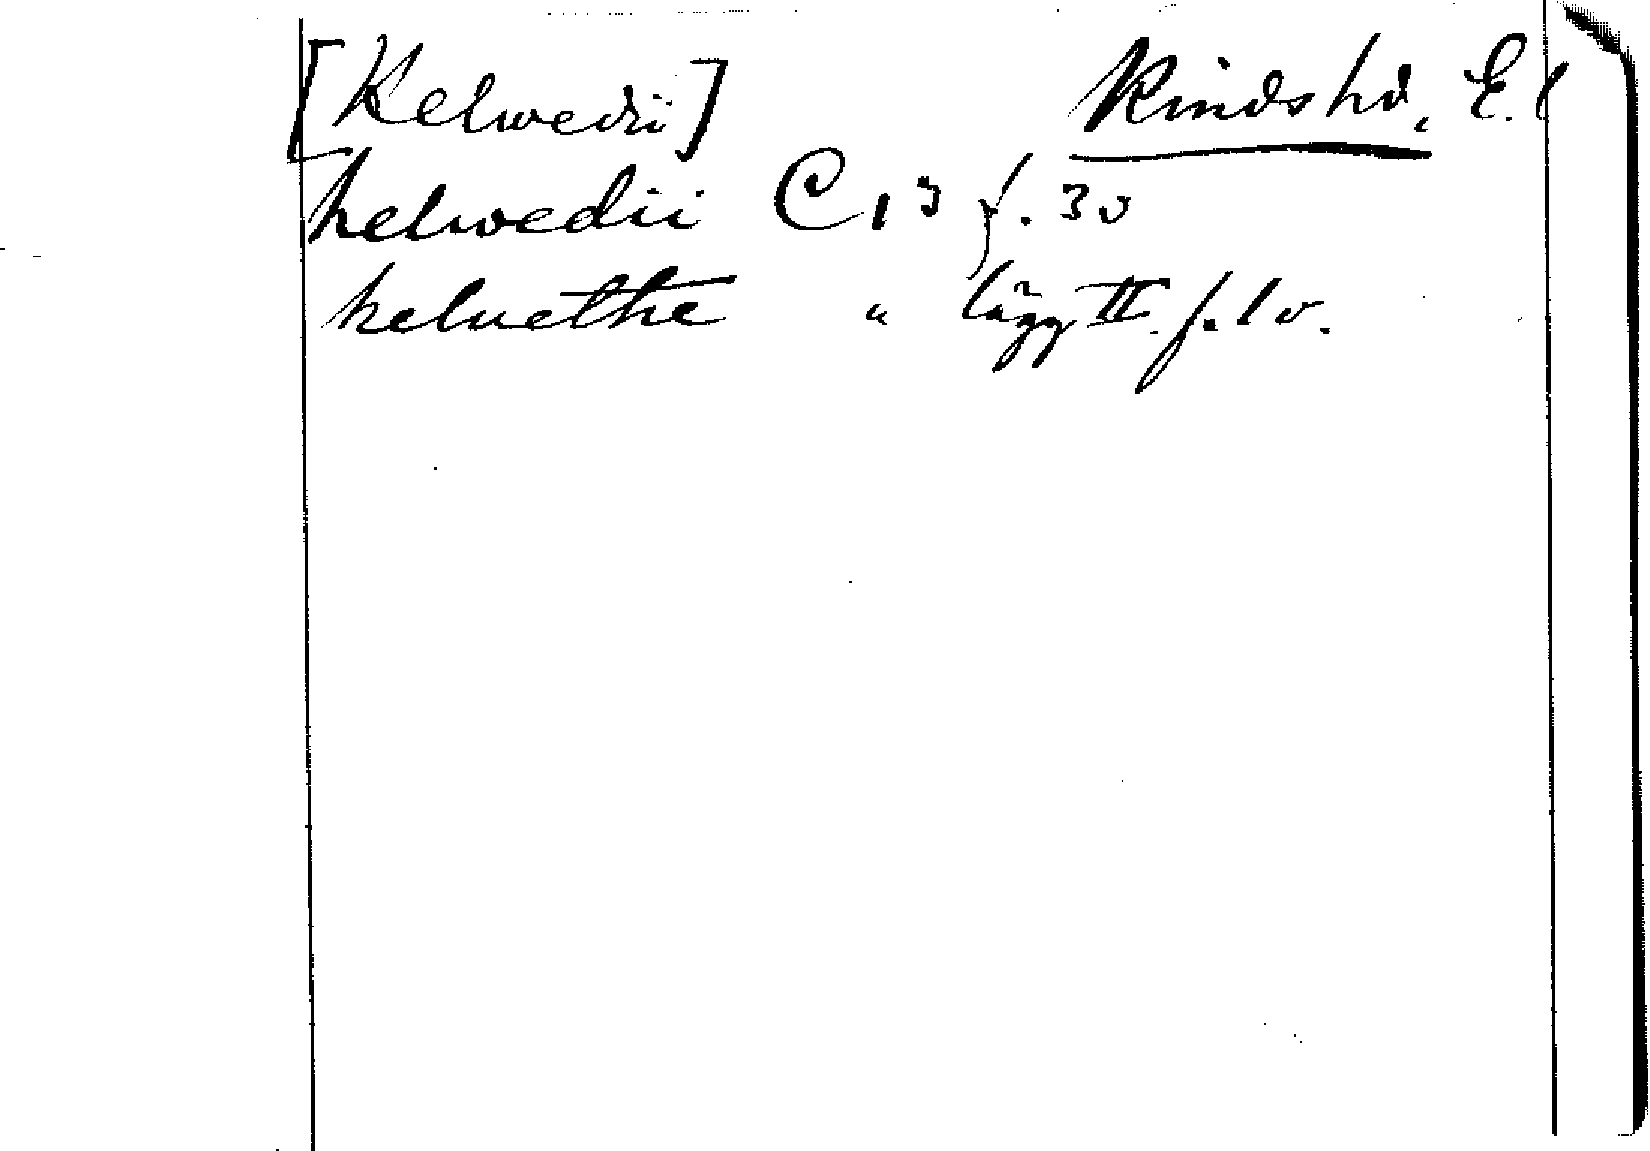 [Kelwedii] Kinds hd, E.
helwedii C 13 f. 3v
heluethe " lägg II. f. 1 v.